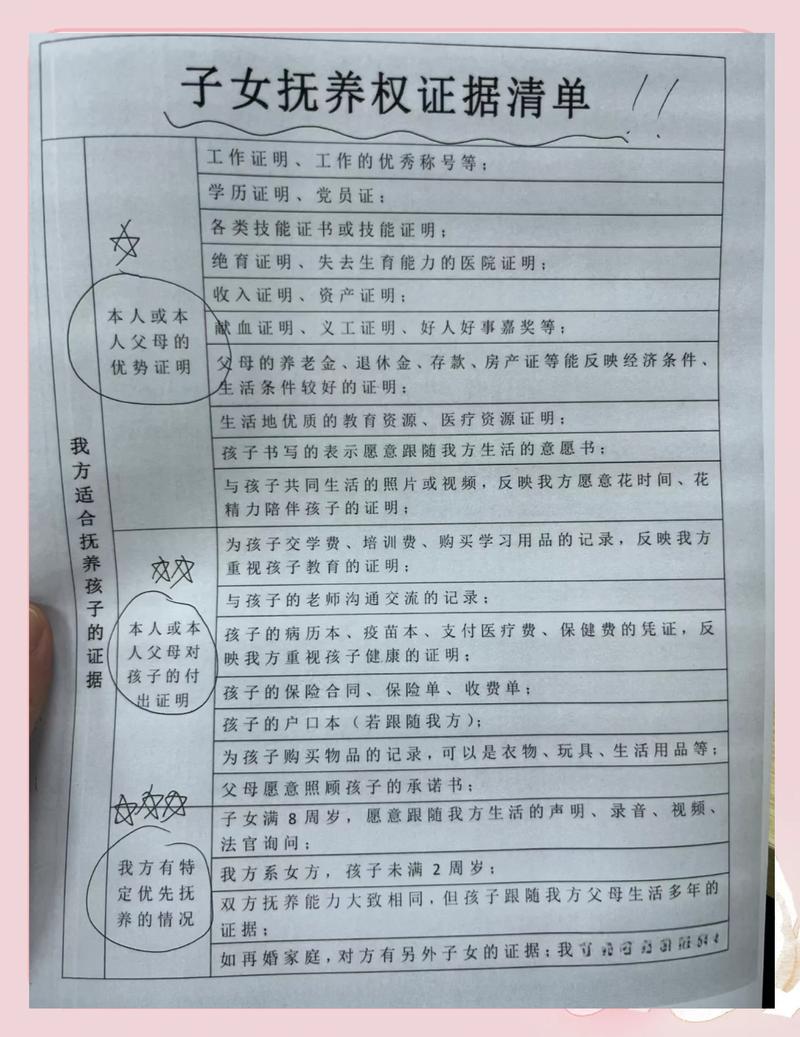 子女抚养权证据清单 !!
我方适合抚养孩子的证据
本人或本
人父母的
优势证明
工作证明、工作的优秀称号等；
学历证明、党员证；
各类技能证书或技能证明；
绝育证明、失去生育能力的医院证明；
收入证明、资产证明；
献血证明、义工证明、好人好事嘉奖等；
父母的养老金、退休金、存款、房产证等能反映经济条件、
生活条件较好的证明；
生活地优质的教育资源、医疗资源证明；
孩子书写的表示愿意跟随我方生活的意愿书；
与孩子共同生活的照片或视频，反映我方愿意花时间、花
精力陪伴孩子的证明；
本人或本
人父母对
孩子的付
出证明
为孩子交学费、培训费、购买学习用品的记录，反映我方
重视孩子教育的证明；
与孩子的老师沟通交流的记录；
孩子的病历本、疫苗本、支付医疗费、保健费的凭证，反
映我方重视孩子健康的证明；
孩子的保险合同、保险单、收费单；
孩子的户口本（若跟随我方）；
为孩子购买物品的记录，可以是衣物、玩具、生活用品等；
父母愿意照顾孩子的承诺书；
我方有特
定优先抚
养的情况
子女满 8 周岁，愿意跟随我方生活的声明、录音、视频、
法官询问；
我方系女方，孩子未满 2 周岁；
双方抚养能力大致相同，但孩子跟随我方父母生活多年的
证据；
如再婚家庭，对方有另外子女的证据；我